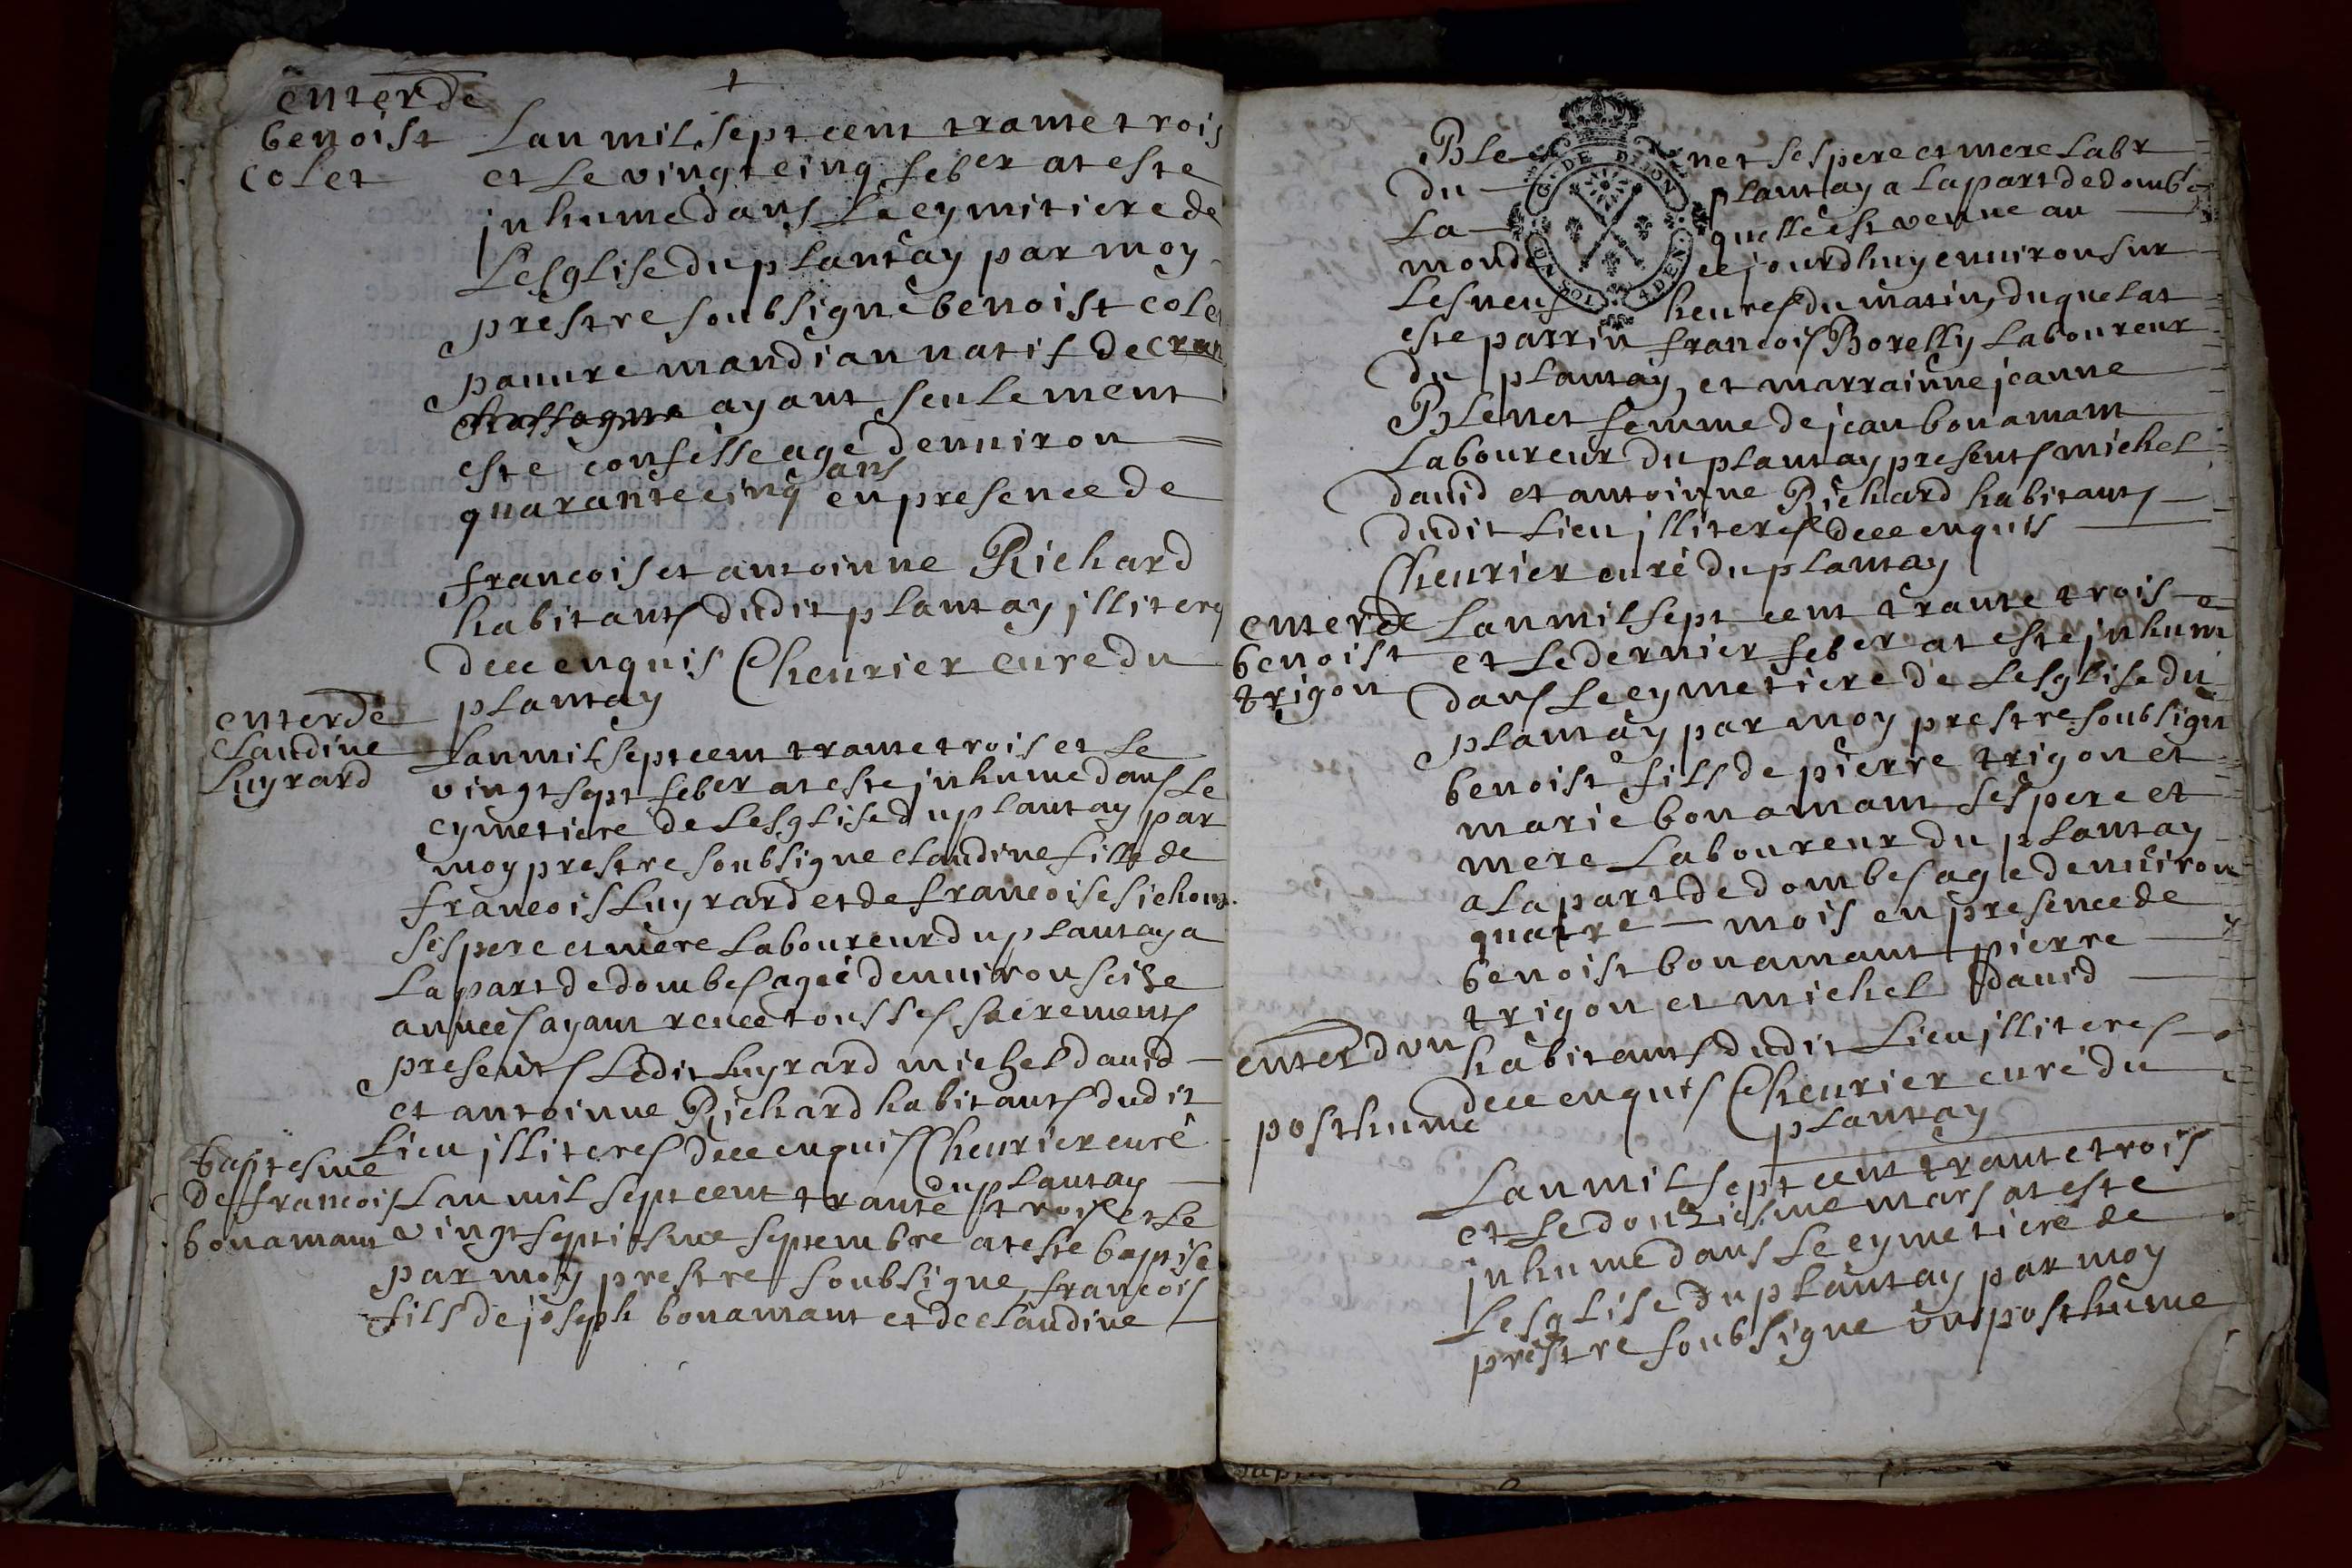 enterde
benoist
colet
Lan mil sept cent trante trois
et le vingt cinq feber at este
inhume dans le cymitiere de
Lesglise du plantay par moy
prestre soubsigne benoist colet
pauure mandian natif de
ayant seulement
este confesse agé denuiron
quarante cinq ans en presence de
francois et antoinne Richard
habitants dudit plantay illiteres
dece enquis Cheurier cure du
plantay
enterde
claudine
Luyrard
Lan mil sept cent trante trois et le
vingt sept feber at este inhume dans le
cymetiere de Lesglise du plantay par
moy prestre soubsigne claudine fille de
francois Luyrard et de francoise
ses pere et mere Laboureur du plantay a
la part de dombes ageé denuiron seize
anneés ayant receu tous ses sacrements
presents Ledit Luyrard michel dauid
et antoinne Richard habitants dudit
Lieu illiteres dece enquis Cheurier curé
du plantay
baptesme
de francois
bonamant
Lan mil sept cent trante trois et le
vingt septiesme septembre at este baptise
par moy prestre soubsigne francois
fils de joseph bonamant et de claudine
Blenet ses pere et mere Labr
du plantay a la part de dombe
La quelle est venue au
monde ce jourdhuy enuiron sur
Les neuf heures du matin, duquel at
este parrin francois Borelly Laboureur
du plantay, et marrainne jeanne
Blenet femme de jean bonamant
Laboureur du plantay presents michel
dauid et antoinne Richard habitants
dudit Lieu illiteres dece enquis
Cheurier curé du plantay
G. DE DIJON
UN SOL 4 DEN.
enterde
benoist
trigon
Lan mil sept cent trante trois
et le dernier feber at este inhume
dans le cymetiere de Lesglise du
plantay par moy prestre soubsign
benoist fils de pierre trigon et
marie bonamant ses pere et
mere Laboureur du plantay
a la part de dombes age denuiron
quatre mois en presence de
benoist bonamant pierre
trigon et michel dauid
habitants dudit Lieu illiteres
dece enquis Cheurier curé du
plantay
enter dun
posthume
Lan mil sept cent trante trois
et le douziesme mars at este
inhume dans le cymetiere de
Lesglise du plantay par moy
prestre soubsigne un posthume